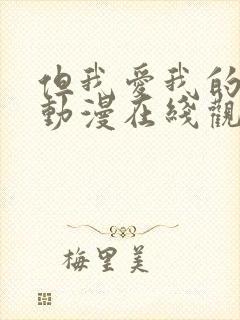 但我爱我的
動漫在綫觀
梅里美